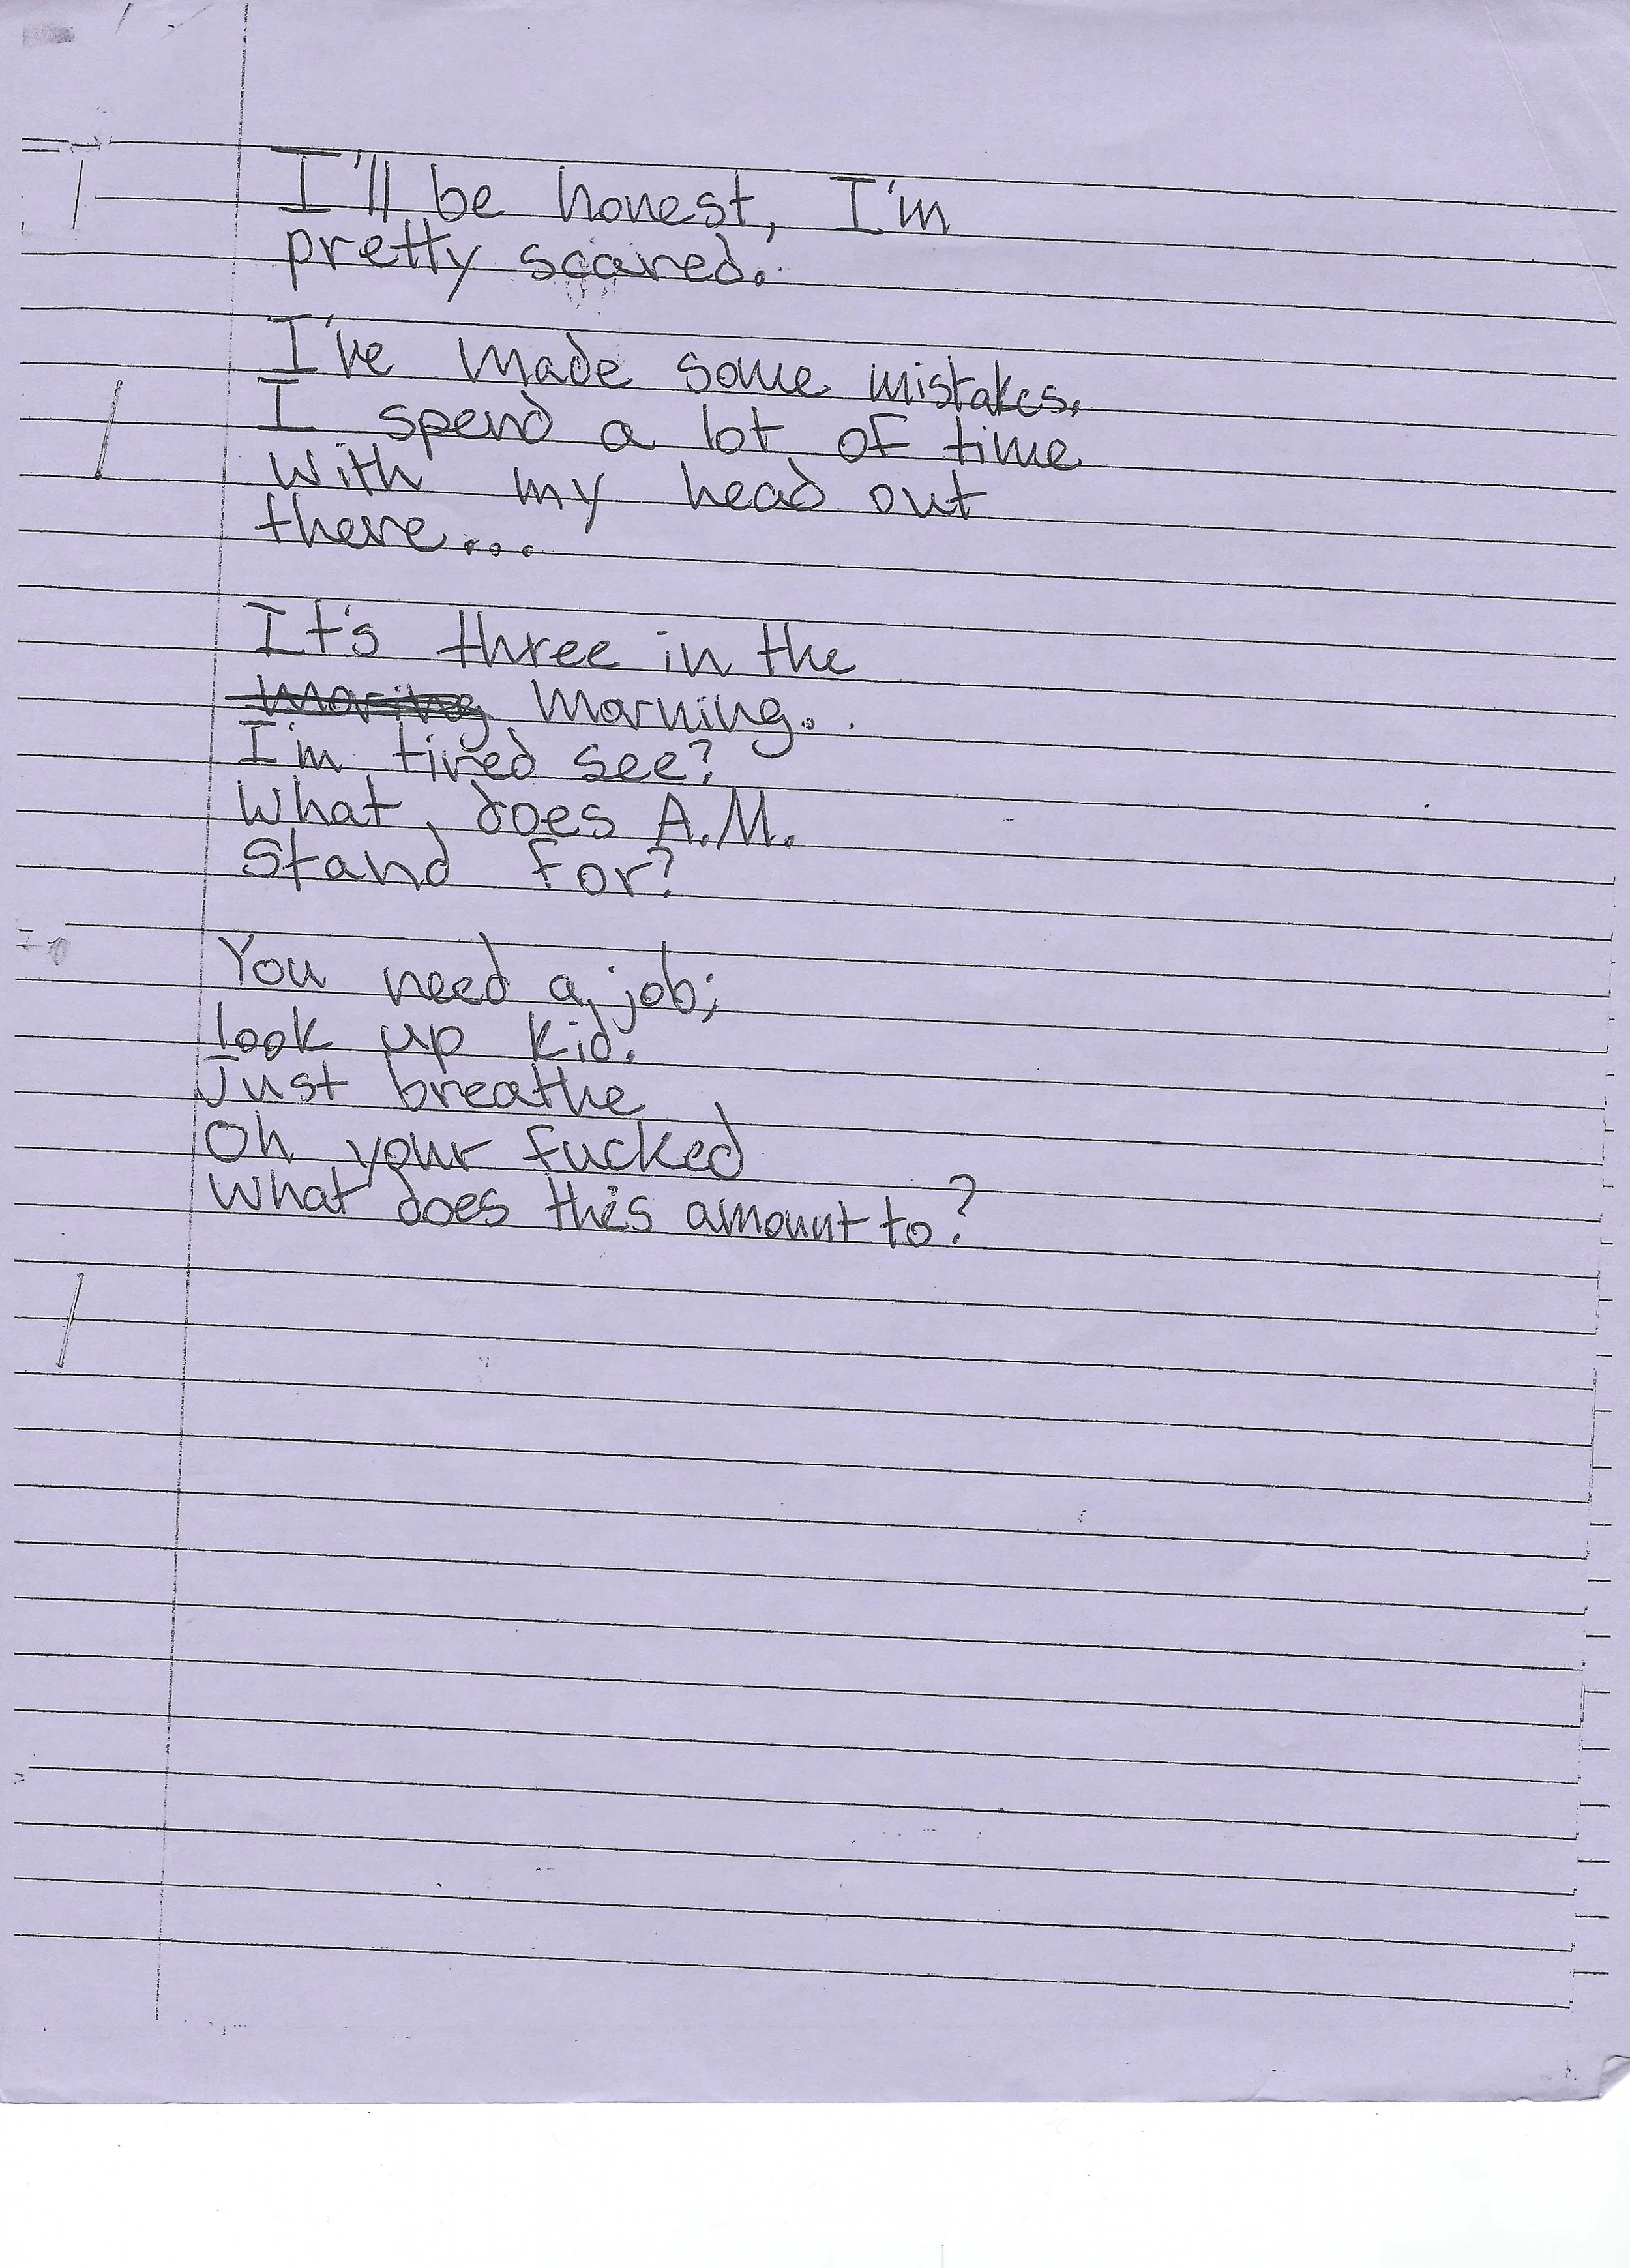 I'll be honest, I'm
pretty scared.
I've made some mistakes.
I spend a lot of time
with my head out
there...
It's three in the
moring morning.
I'm tired see?
What does A.M.
Stand for?
You need a job;
look up kid.
Just breathe
Oh your fucked
what does this amount to?